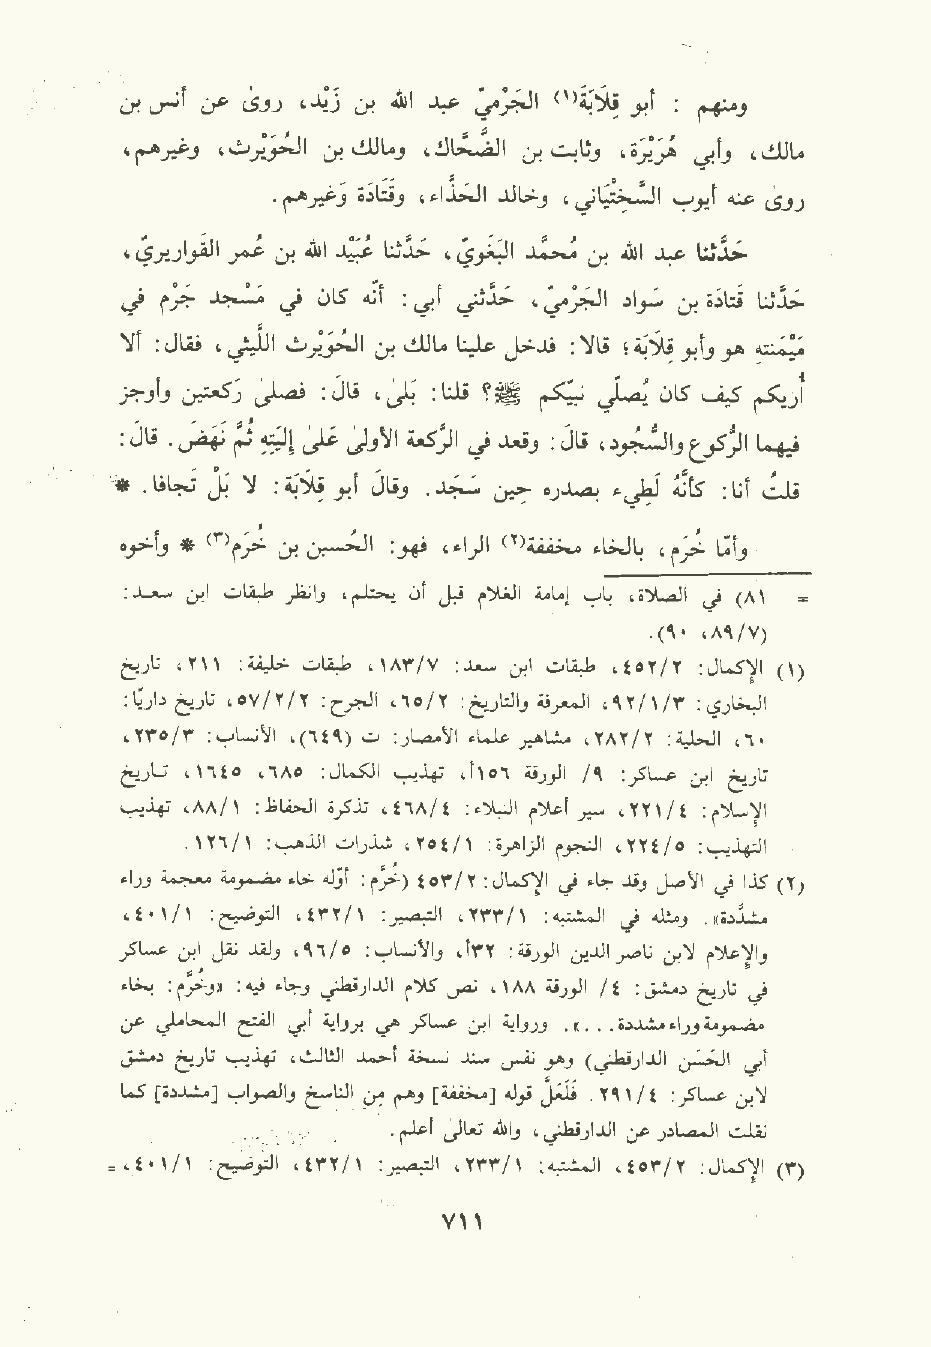 ومنهم : أبو قِلَابَةَ(١) الجَرْميّ عبد الله بن زَيْد، روىٰ عن أنس بن
مالك، وأبي هُرَيْرَة، وثابت بن الضَّحاك، ومالك بن الحُوَيْرث، وغيرهم،
روىٰ عنه أيوب السَّخِتْيَاني، وخالد الحَذّاء، وقَتَادَة وَغيرهم.
حَدَّثنا عبد الله بن مُحمَّد البَغَويّ، حَدَّثنا عُبَيْد الله بن عُمَر القَواريريّ،
حَدَّثنا قَتادَة بن سَوار الجَرْميّ، حَدَّثني أبي: أنّه كان في مَسْجد جَرْم في
مَيْمَنته هو وأبو قِلَابَة؛ قالا: فدخل علينا مالك بن الحُوَيْرث اللَّيثي، فقال: ألا
أُريكم كيف كان يُصلّي نبيّكم ﷺ؟ قلنا: بَلىٰ، قالَ: فصلىٰ رَكعتين وأوجز
فيهما الرُّكوع والسُّجُود، قالَ: وقعد في الرَّكعة الأولىٰ عَلىٰ إليَتِهِ ثُمَّ نَهَضَ. قالَ:
قلتُ أنا: كأنَّهُ لَبَطيء بصدره حين سَجَد. وقالَ أبو قِلَابَة: لا بَلْ تَجافا. *
وأمّا خُرَم، بالخاء مخففة(٢) الراء، فهو: الحُسين بن خُرَم(٣) * وأخوه
= ٨١) في الصلاة، باب إمامة الغلام قبل أن يحتلم، وانظر طبقات ابن سعد:
(٨٩/٧، ٩٠).
(١) الإكمال: ٤٥٢/٢، طبقات ابن سعد: ١٨٣/٧، طبقات خليفة: ٢١١، تاريخ
البخاري: ٩٢/١/٣، المعرفة والتاريخ: ٦٥/٢، الجرح: ٥٧/٢/٢، تاريخ داريّا:
٦٠، الحلية: ٢٨٢/٢، مشاهير علماء الأمصار: ت (٦٤٩)، الأنساب: ٢٣٥/٣،
تاريخ ابن عساكر: ٩/ الورقة ١٥٦أ، تهذيب الكمال: ٦٨٥، ١٦٤٥، تاريخ
الإسلام: ٢٢١/٤، سير أعلام النبلاء: ٤٦٨/٤، تذكرة الحفاظ: ٨٨/١، تهذيب
التهذيب: ٢٢٤/٥، النجوم الزاهرة: ٢٥٤/١، شذرات الذهب: ١٢٦/١.
(٢) كذا في الأصل وقد جاء في الإكمال: ٤٥٣/٢ (خُرَّم: أوّله خاء مضمومة معجمة وراء
مشدّدة». ومثله في المشتبه: ٢٣٣/١، التبصير: ٤٣٢/١، التوضيح: ٤٠١/١،
والإعلام لابن ناصر الدين الورقة: ٣٢أ، والأنساب: ٩٦/٥، ولقد نقل ابن عساكر
في تاريخ دمشق: ٤/ الورقة ١٨٨، نص كلام الدارقطني وجاء فيه: «وخُرَّم: بخاء
مضمومة وراء مشددة...». ورواية ابن عساكر هي برواية أبي الفتح المحاملي عن
أبي الحَسَن الدارقطني) وهو نفس سند نسخة أحمد الثالث، تهذيب تاريخ دمشق
لابن عساكر: ٢٩١/٤. فَلَعَلَّ قوله [مخففة] وهم مِن الناسخ والصواب [مشددة] كما
نقلت المصادر عن الدارقطني، والله تعالىٰ أعلم.
(٣) الإكمال: ٤٥٣/٢، المشتبه: ٢٣٣/١، التبصير: ٤٣٢/١، التوضيح: ٤٠١/١، =
٧١١